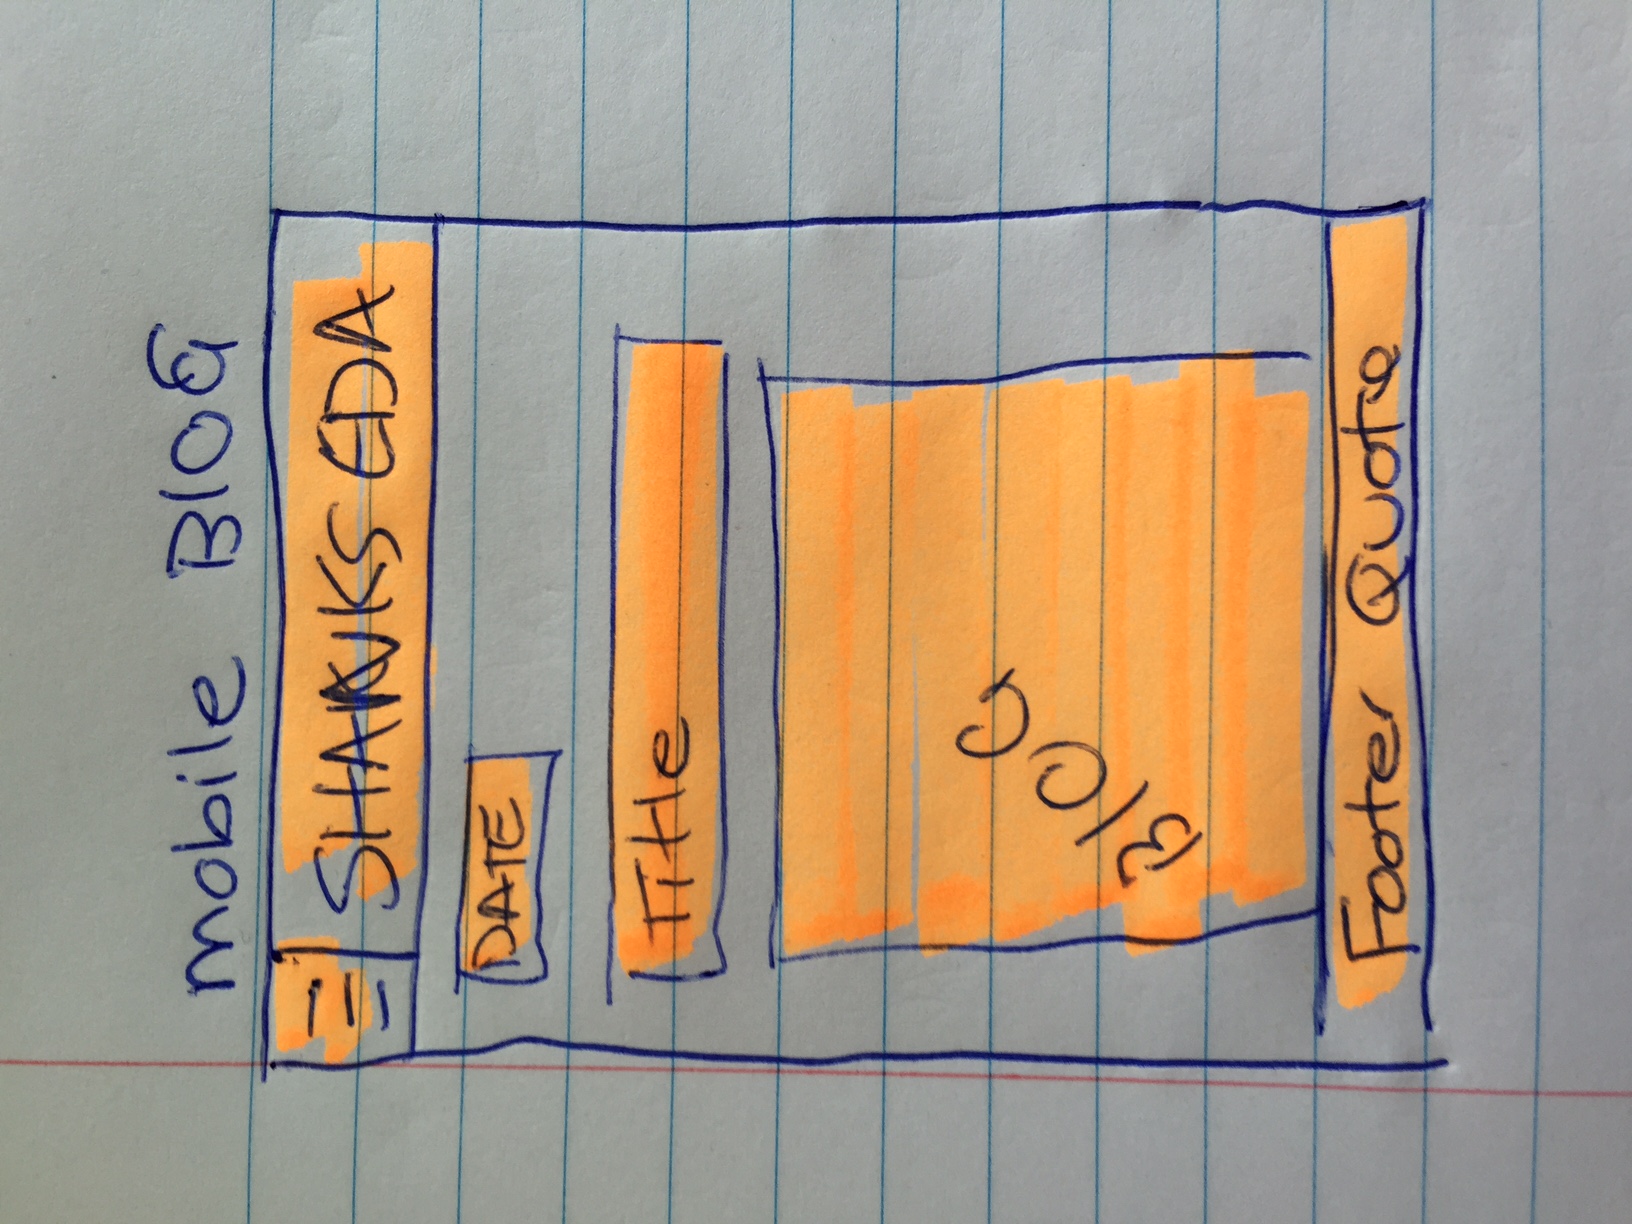 mobile BlOG
SHANKS EDA
DATE
Title
BlOG
Footer Quote